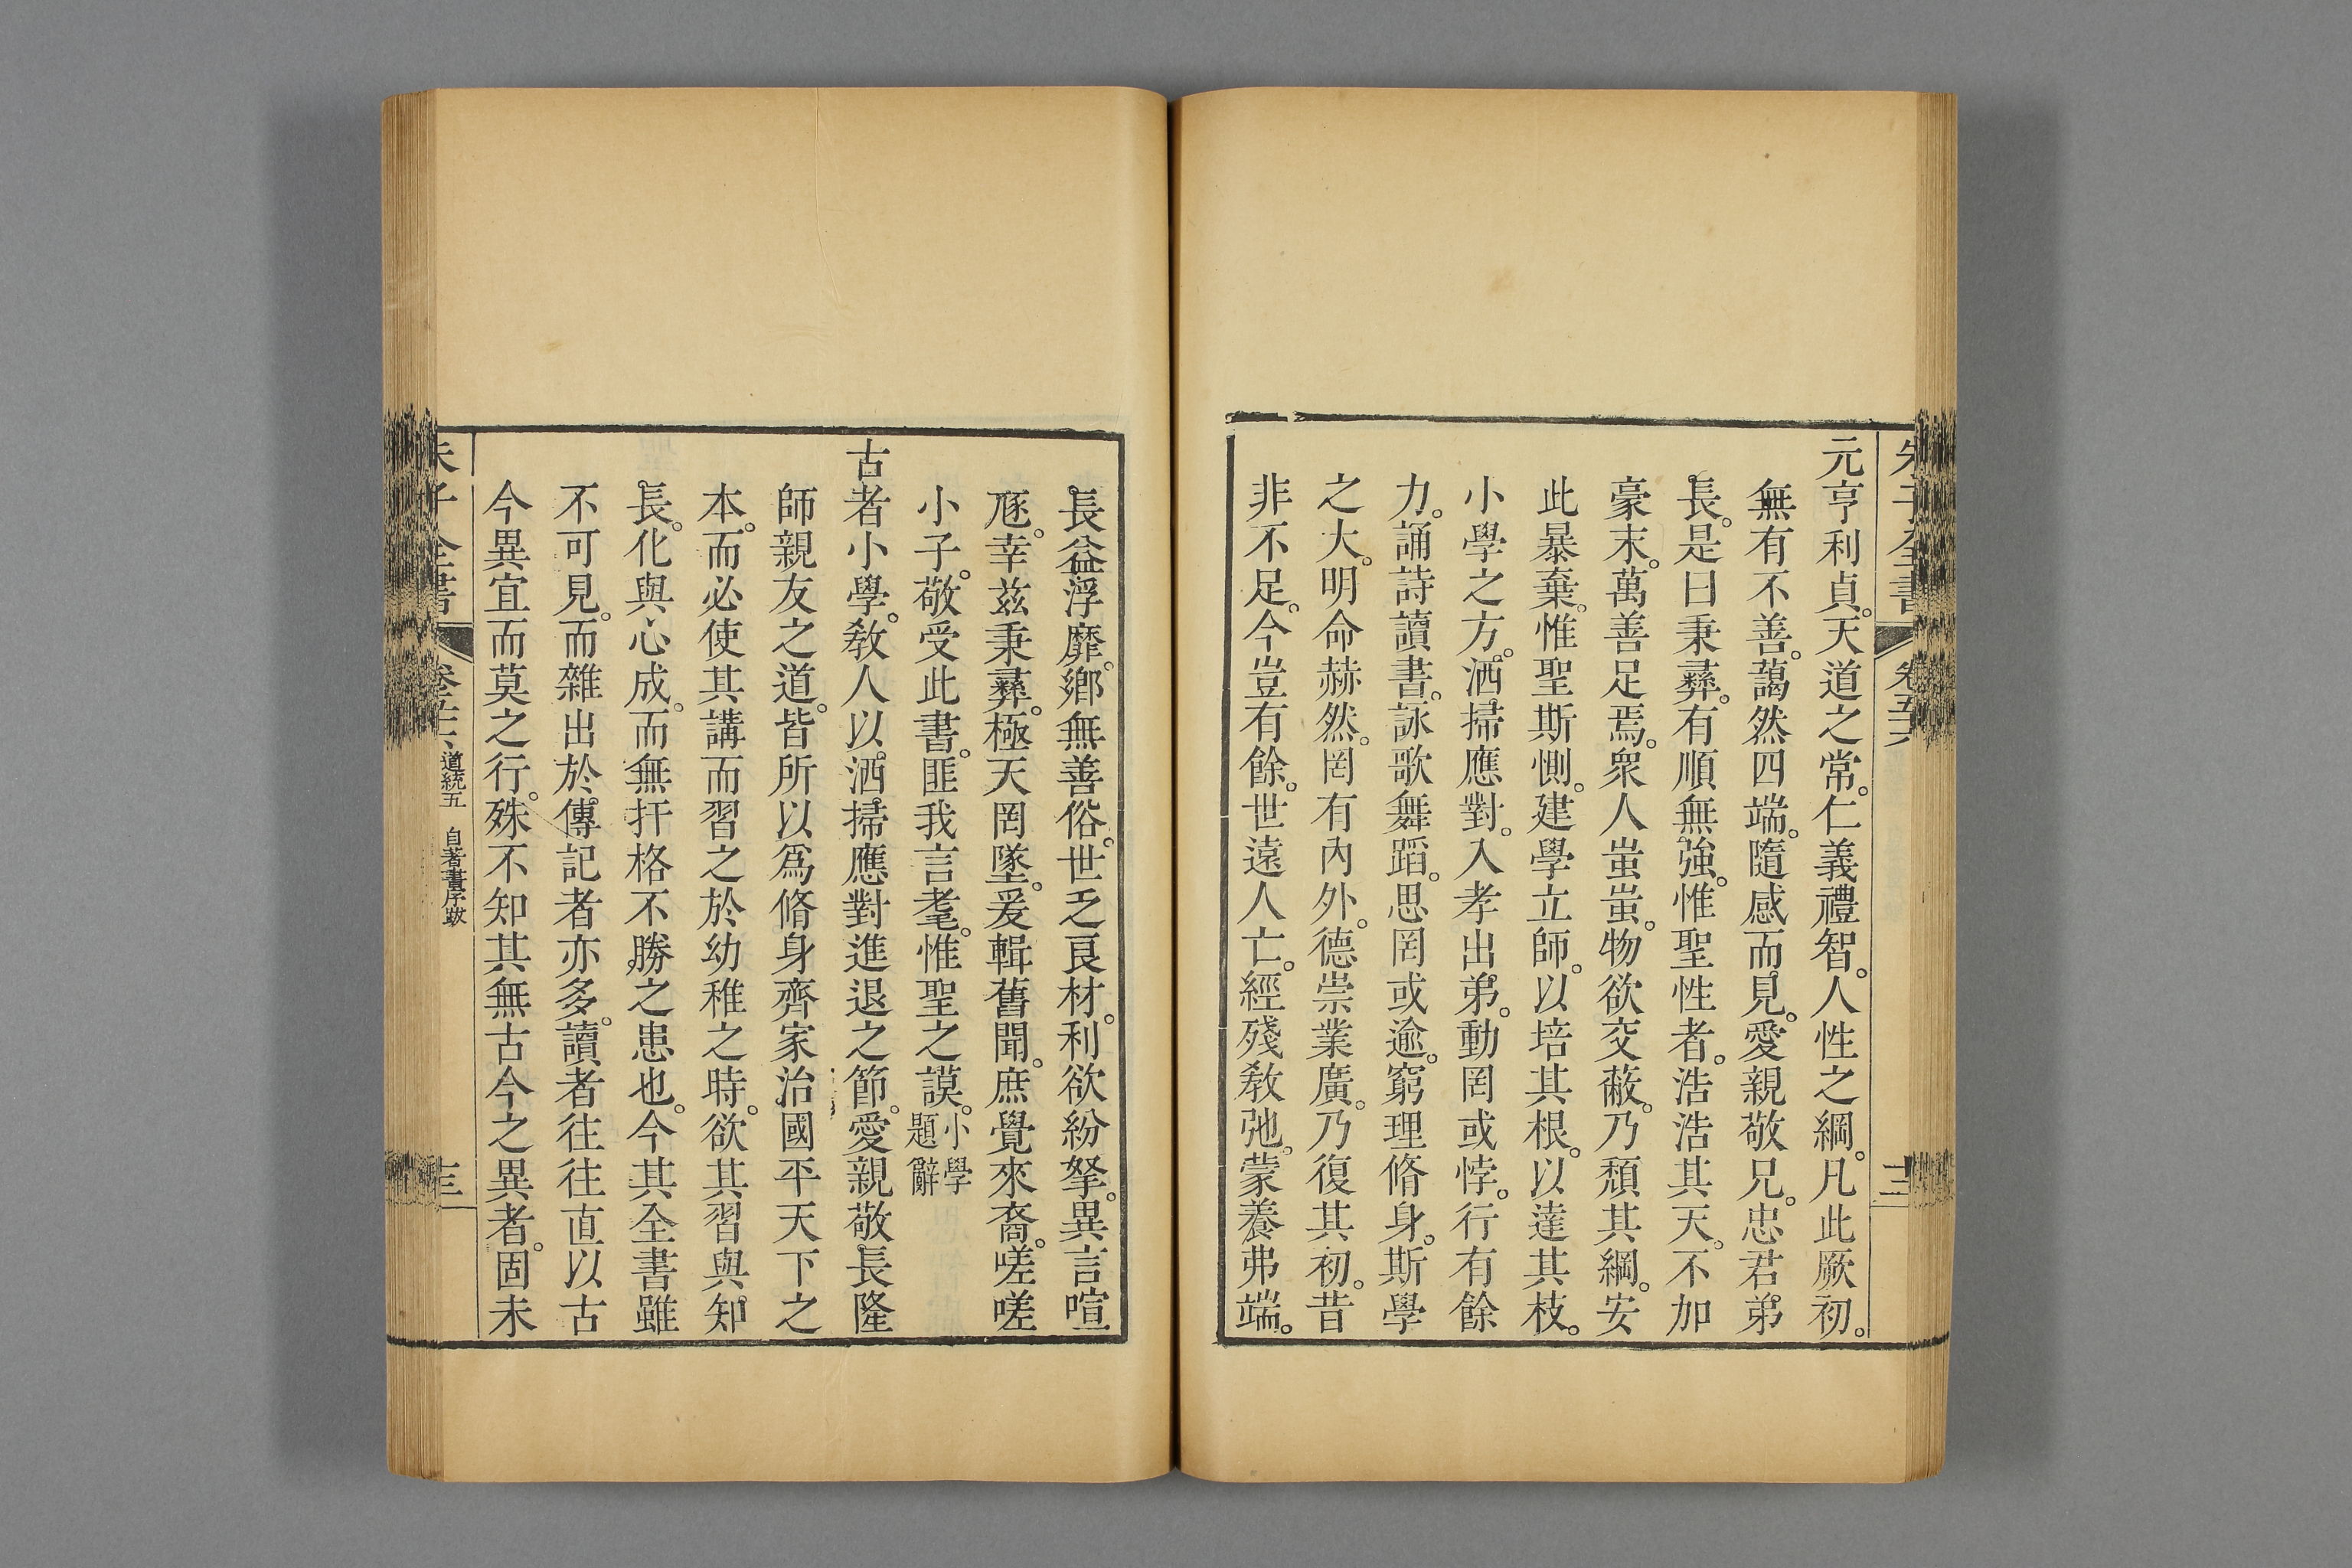 朱子全書 卷五十六 十三
元亨利貞。天道之常。仁義禮智。人性之綱。凡此厥初。
無有不善。藹然四端。隨感而見。愛親敬兄。忠君弟
長。是曰秉彝。有順無強。惟聖性者。浩浩其天。不加
豪末。萬善足焉。衆人蚩蚩。物欲交蔽。乃頹其綱。安
此暴棄。惟聖斯惻。建學立師。以培其根。以達其枝。
小學之方。洒掃應對。入孝出弟。動罔或悖。行有餘
力。誦詩讀書。詠歌舞蹈。思罔或逾。窮理脩身。斯學
之大。明命赫然。罔有內外。德崇業廣。乃復其初。昔
非不足。今豈有餘。世遠人亡。經殘敎弛。蒙養弗端。
長益浮靡。鄉無善俗。世乏良材。利欲紛拏。異言喧
豗。幸茲秉彝。極天罔墜。爰輯舊聞。庶覺來裔。嗟嗟
小子。敬受此書。匪我言耄。惟聖之謨。小學題辭
古者小學。敎人以洒掃應對進退之節。愛親敬長隆
師親友之道。皆所以爲脩身齊家治國平天下之
本。而必使其講而習之於幼稚之時。欲其習與知
長。化與心成。而無扞格不勝之患也。今其全書雖
不可見。而雜出於傳記者亦多。讀者往往直以古
今異宜而莫之行。殊不知其無古今之異者。固未
朱子全書 卷五十六 道統五 自著書序跋 十三